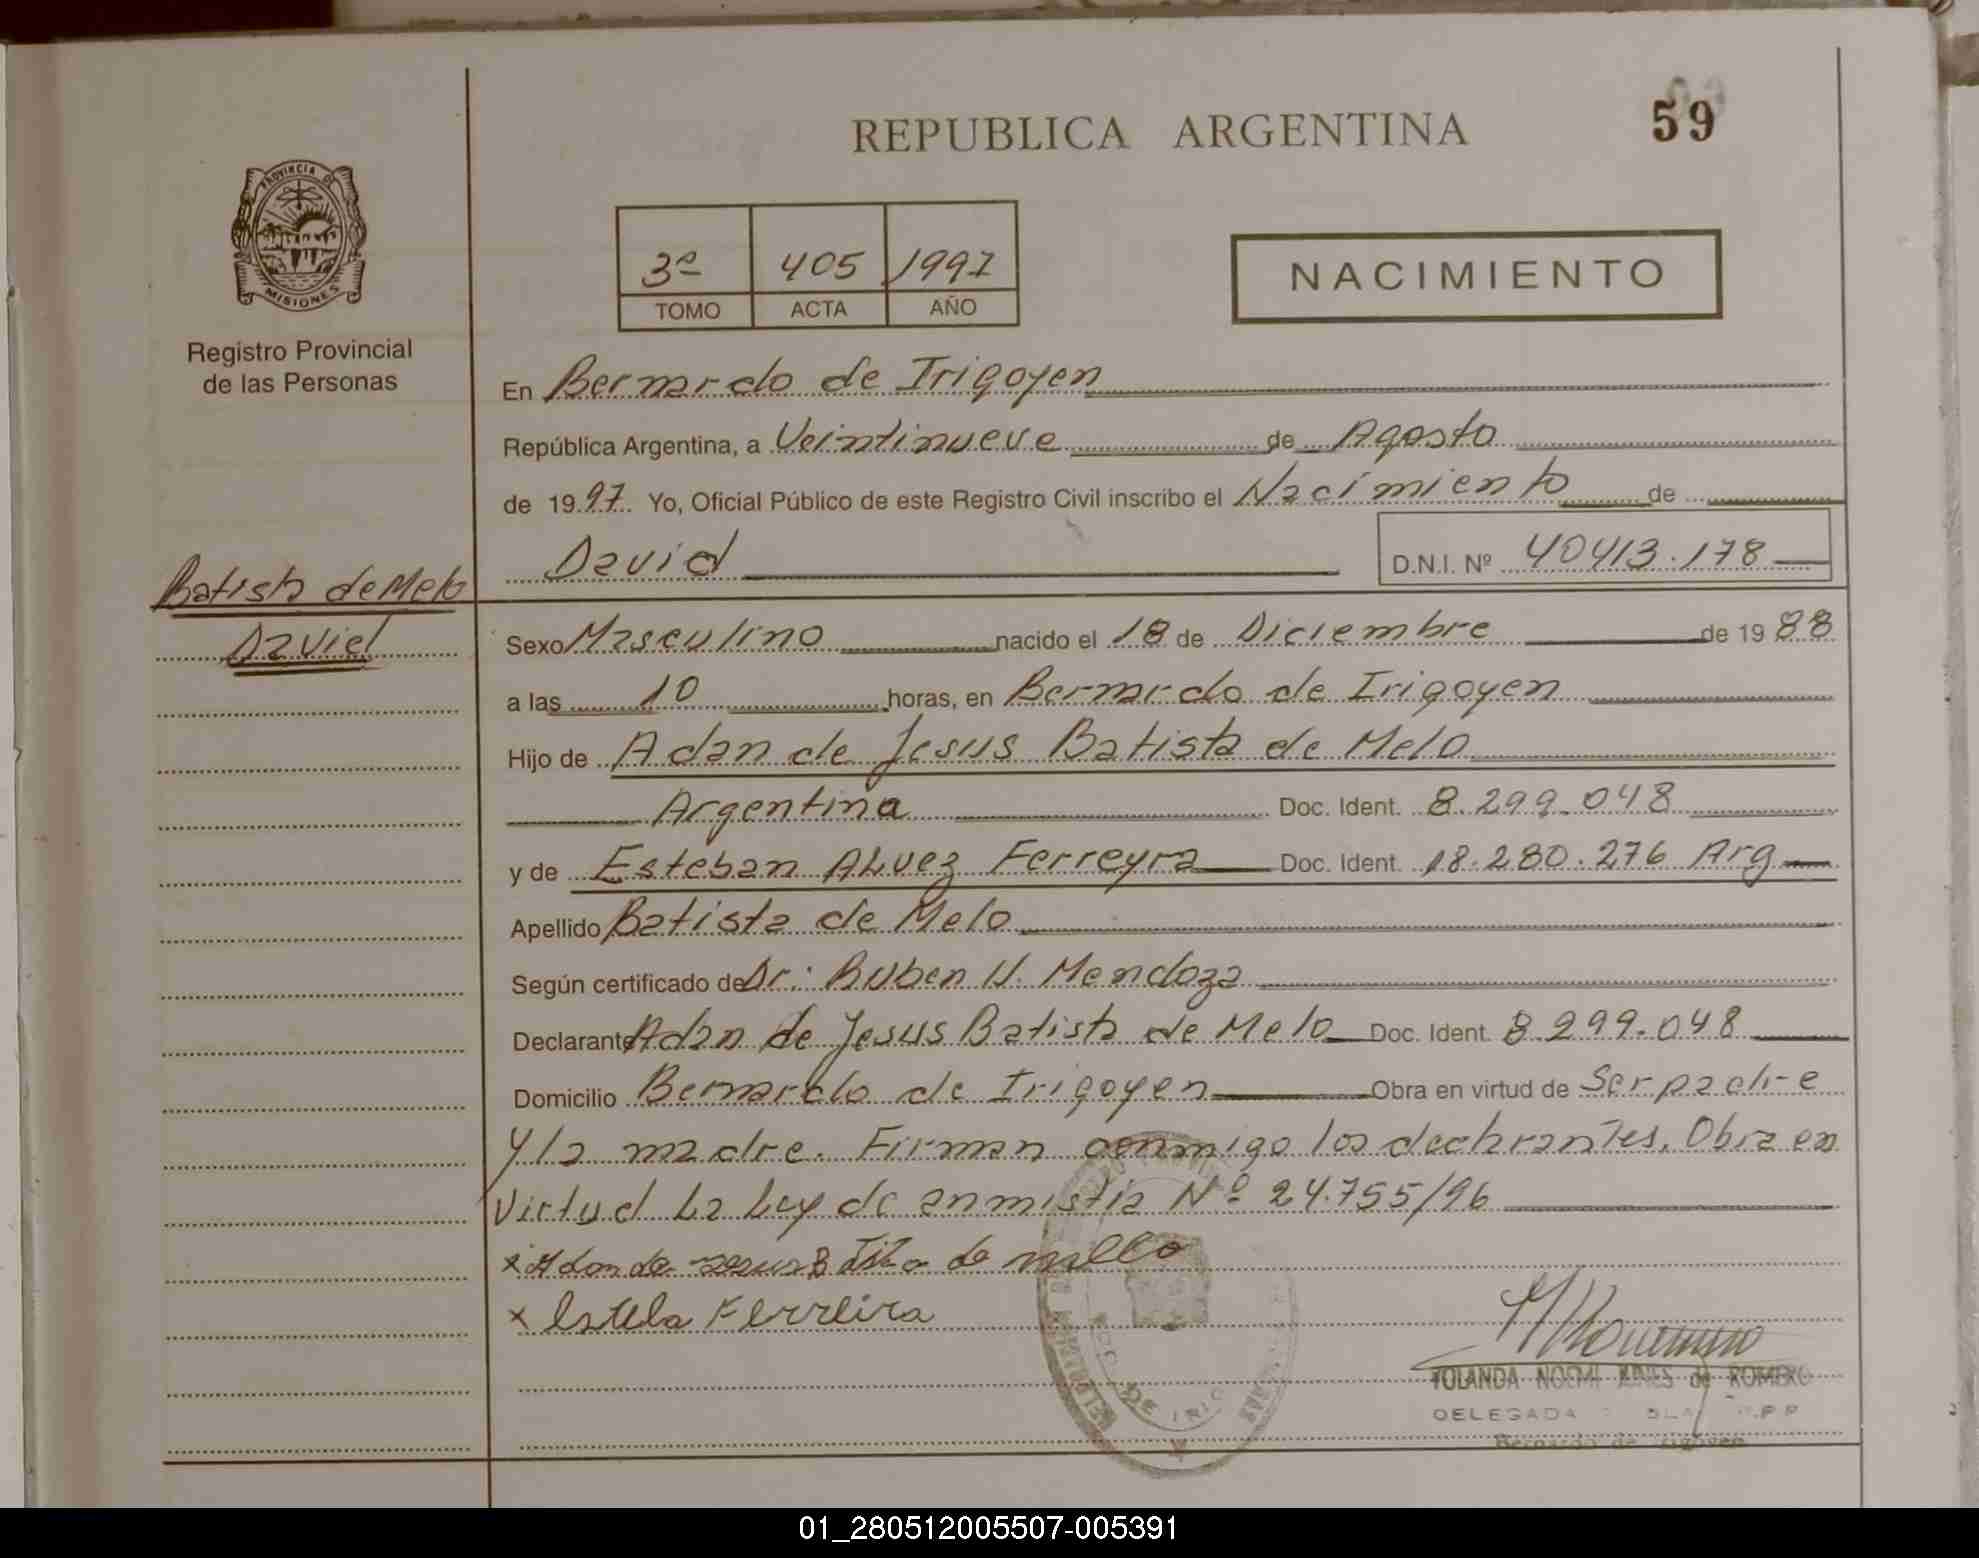 REPUBLICA ARGENTINA
59
PROVINCIA DE
MISIONES
Registro Provincial
de las Personas
3º 405 1997
TOMO ACTA AÑO
NACIMIENTO
En Bernardo de Irigoyen
República Argentina, a Veintinueve de Agosto
de 1997. Yo, Oficial Público de este Registro Civil inscribo el Nacimiento de
David D.N.I. Nº 40413.178
Batista de Melo
David
Sexo Masculino nacido el 18 de Diciembre de 1988
a las 10 horas, en Bernardo de Irigoyen
Hijo de Adan de Jesus Batista de Melo
Argentina Doc. Ident. 8.299.048
y de Esteban Alvez Ferreyra Doc. Ident. 18.280.276 Arg
Apellido Batista de Melo
Según certificado de Dr: Ruben H. Mendoza
Declarante Adan de Jesus Batista de Melo Doc. Ident. 8.299.048
Domicilio Bernardo de Irigoyen Obra en virtud de Ser padre
y la madre. Firman conmigo los declarantes. Obra en
Virtud La Ley de anmistia Nº 24.755/96
x Adan de Jesus Batista de mello
x Estela Ferreira
DE IRIG
YOLANDA NOEMI de ROMERO
DELEGADA
Bernardo de Irigoyen
01_280512005507-005391